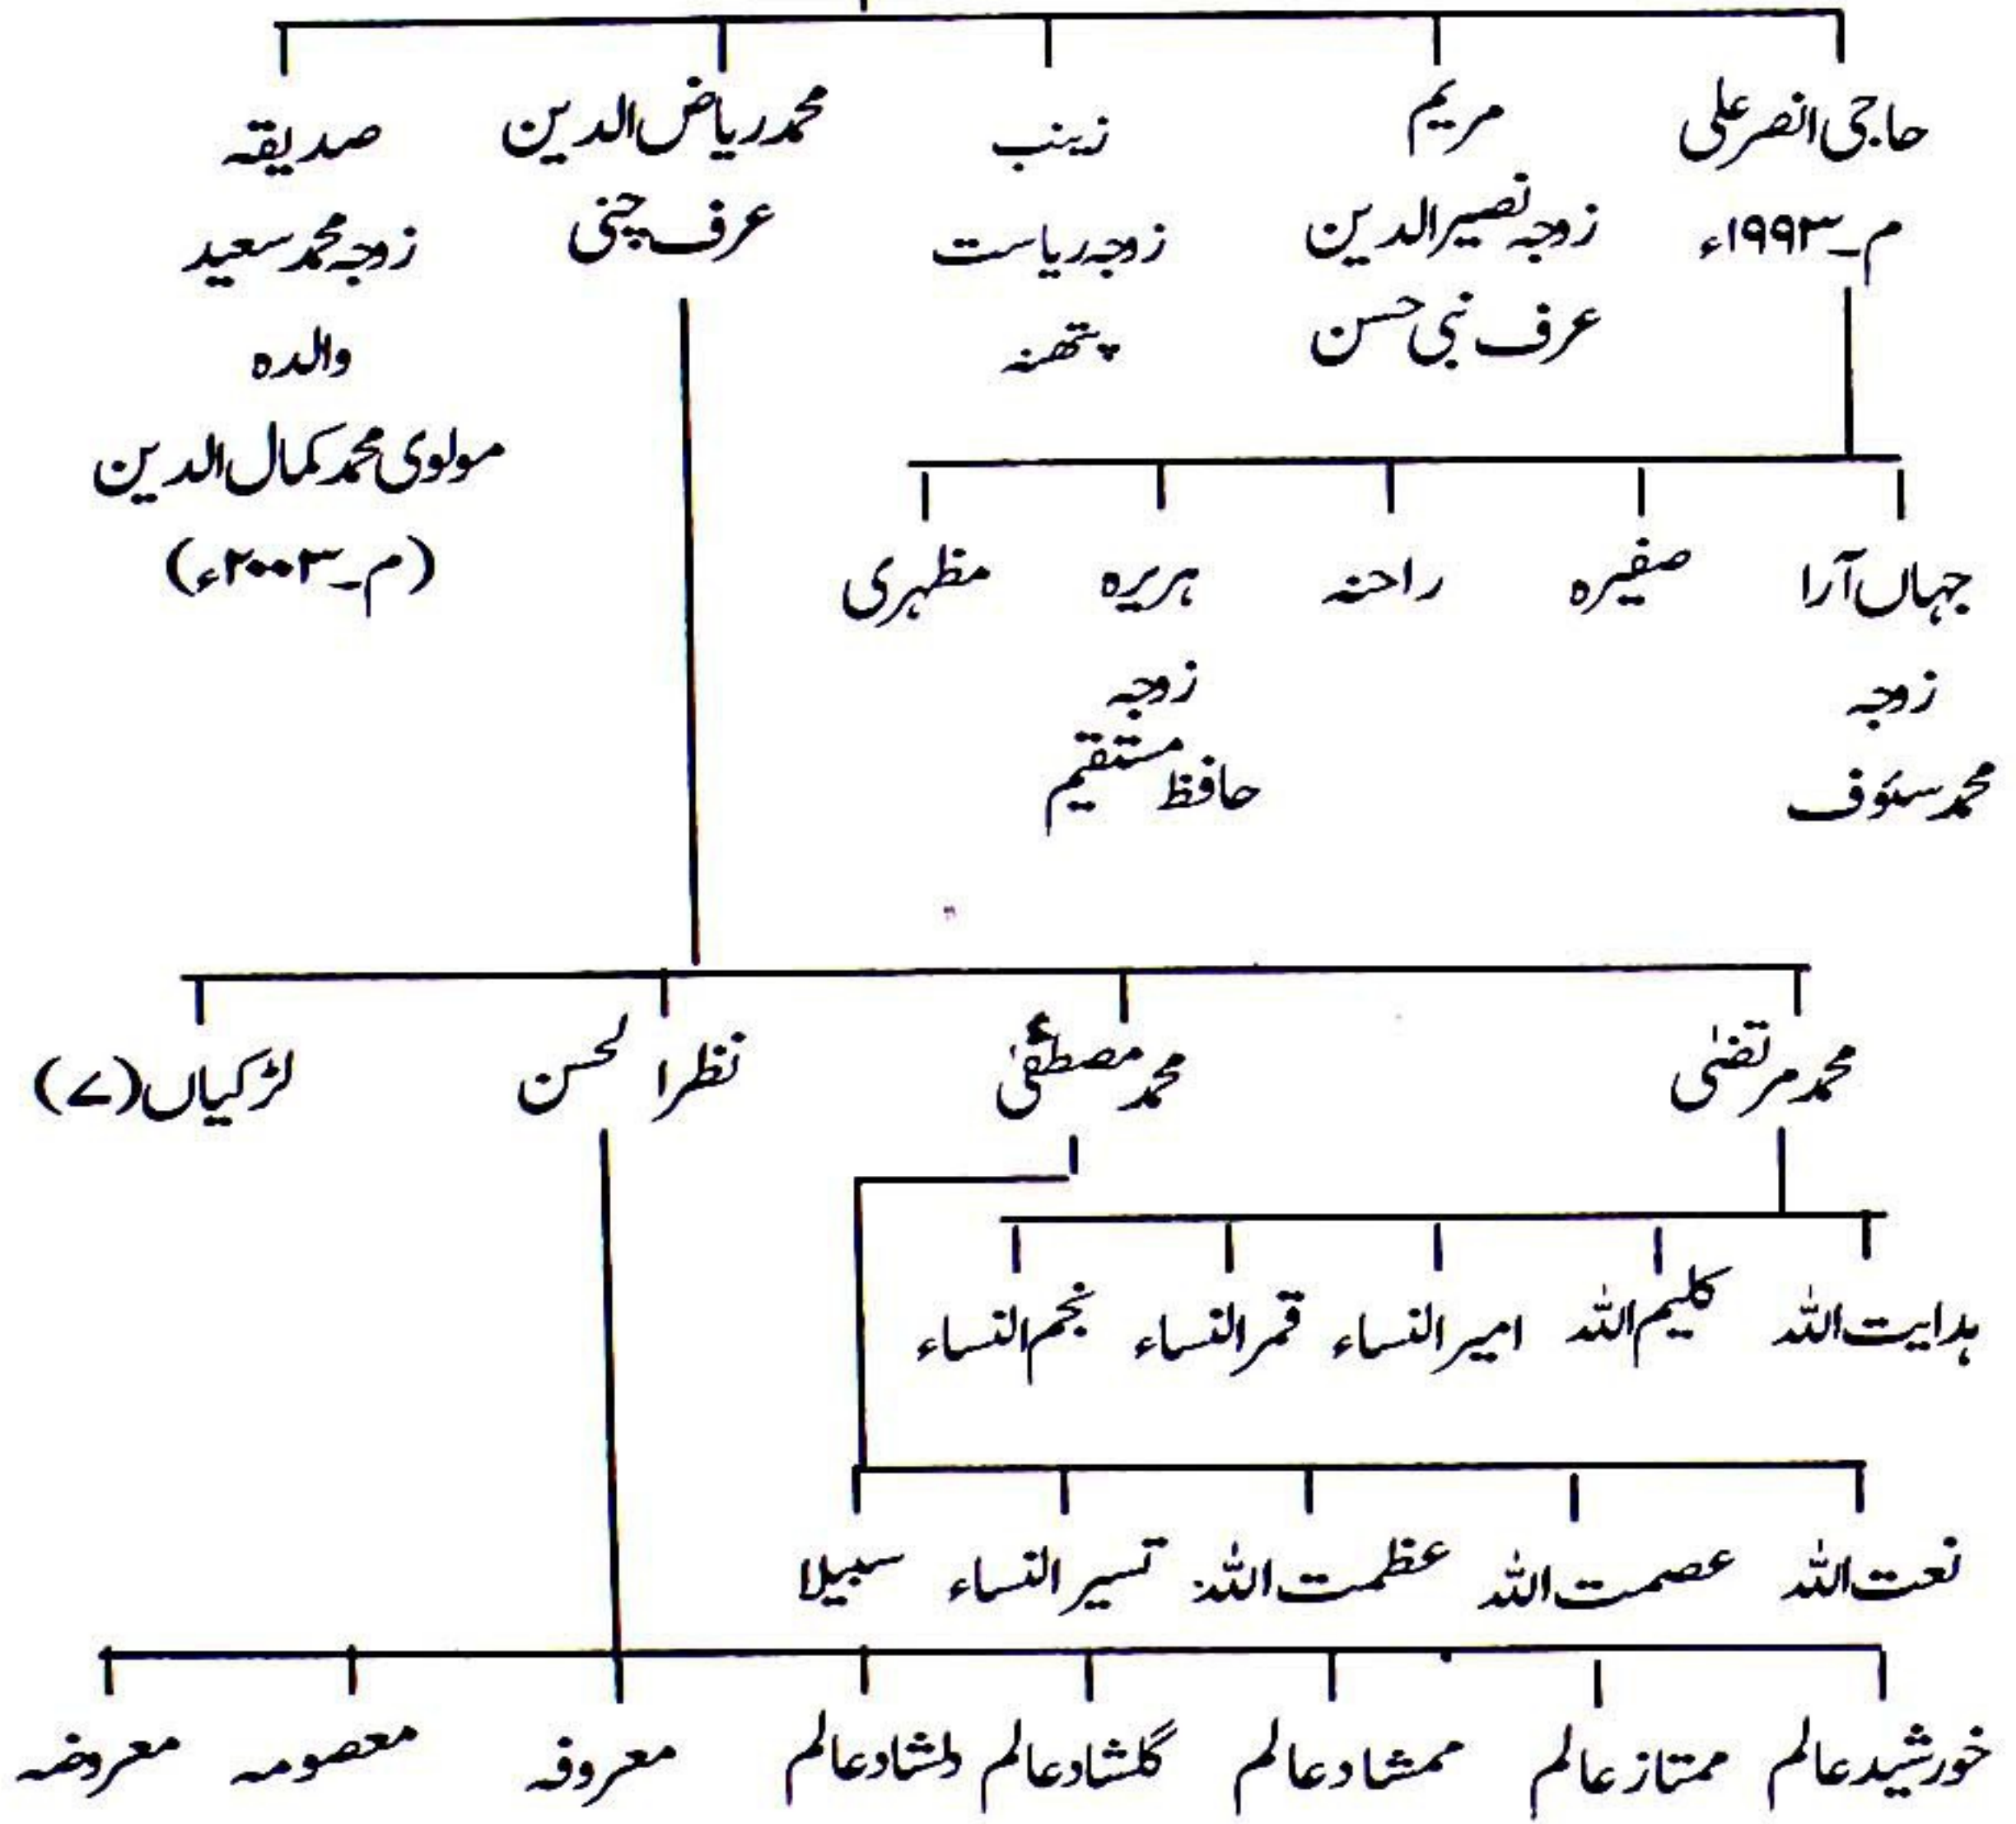 حاجی انصر علی
م۔۱۹۹۳ء
مریم
زوجہ نصیر الدین
عرف نبی حسن
زینب
زوجہ ریاست
پتھنہ
محمد ریاض الدین
عرف چنی
صدیقہ
زوجہ محمد سعید
والدہ
مولوی محمد کمال الدین
(م۔۲۰۰۳ء)
جہاں آرا
زوجہ
محمد سئوف
صفیرہ
راحنہ
ہریرہ
زوجہ
حافظ مستقیم
مظہری
محمد مرتضیٰ
محمد مصطفیٰ
نظرا لحسن
لڑکیاں (۷)
ہدایت اللہ
کلیم اللہ
امیر النساء
قمر النساء
نجم النساء
نعت اللہ
عصمت اللہ
عظمت اللہ
تسیر النساء
سبیلا
خورشید عالم
ممتاز عالم
ممشاد عالم
گلشاد عالم
دلشاد عالم
معروفہ
معصومہ
معروضہ